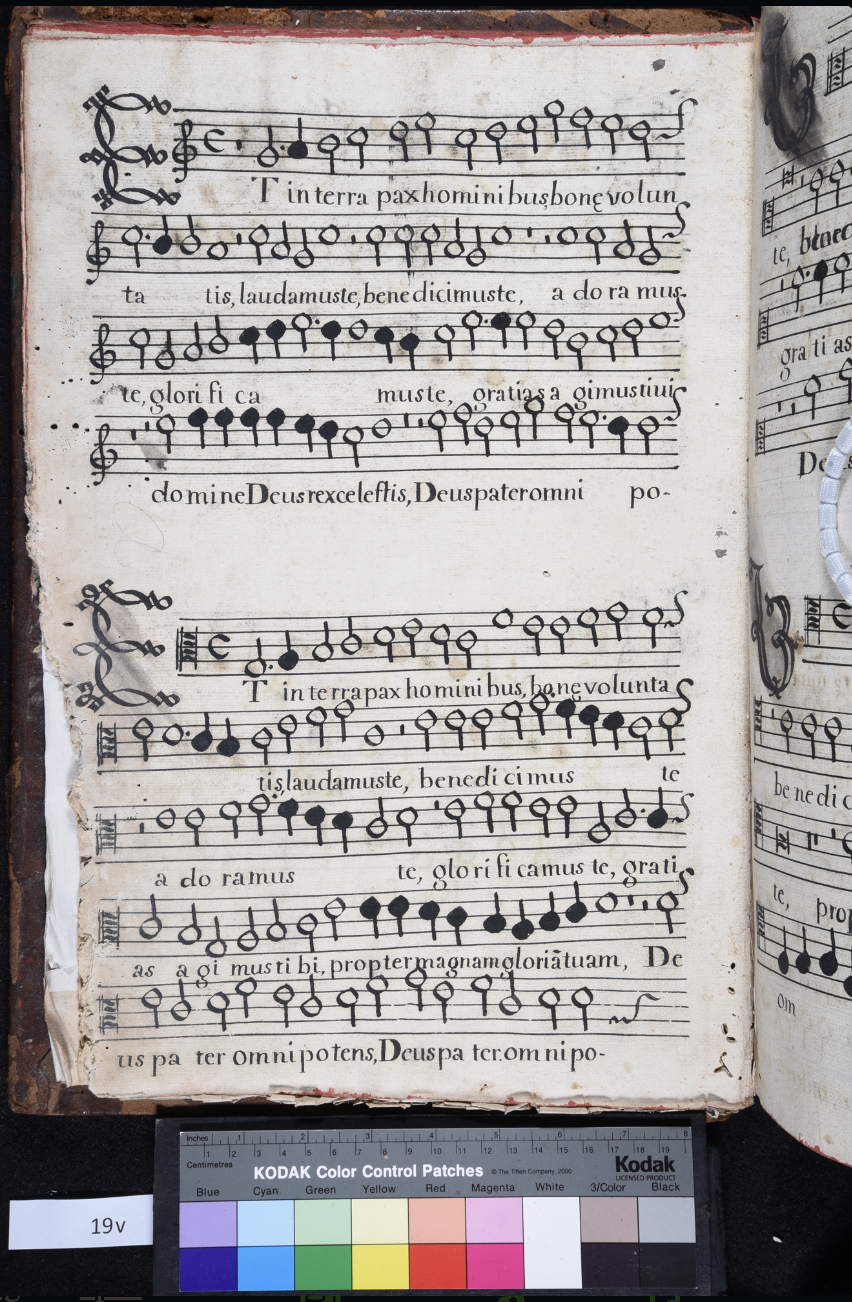 ET in terra pax homini bus, bonę volun
ta tis, laudamus te, bene dicimus te, a do ra mus
te, glori fi ca mus te, gratias a gimus tiui
domine Deus rex celestis, Deus pater omni po-
ET in terra pax homini bus, bonę volunta
tis, laudamus te, benedi ci mus te
a do ramus te, glo ri fi camus te, grati
as a gi mus ti bi, propter magnam gloriā tuam, De
us pa ter omnipotens, Deus pa ter om ni po-
te, bened
gra ti as
De
be ne di c
te, prop
om
19v
Inches 1 2 3 4 5 6 7 8
Centimetres 1 2 3 4 5 6 7 8 9 10 11 12 13 14 15 16 17 18 19
KODAK Color Control Patches © The Tiffen Company, 2000 Kodak
LICENSED PRODUCT
Blue Cyan Green Yellow Red Magenta White 3/Color Black